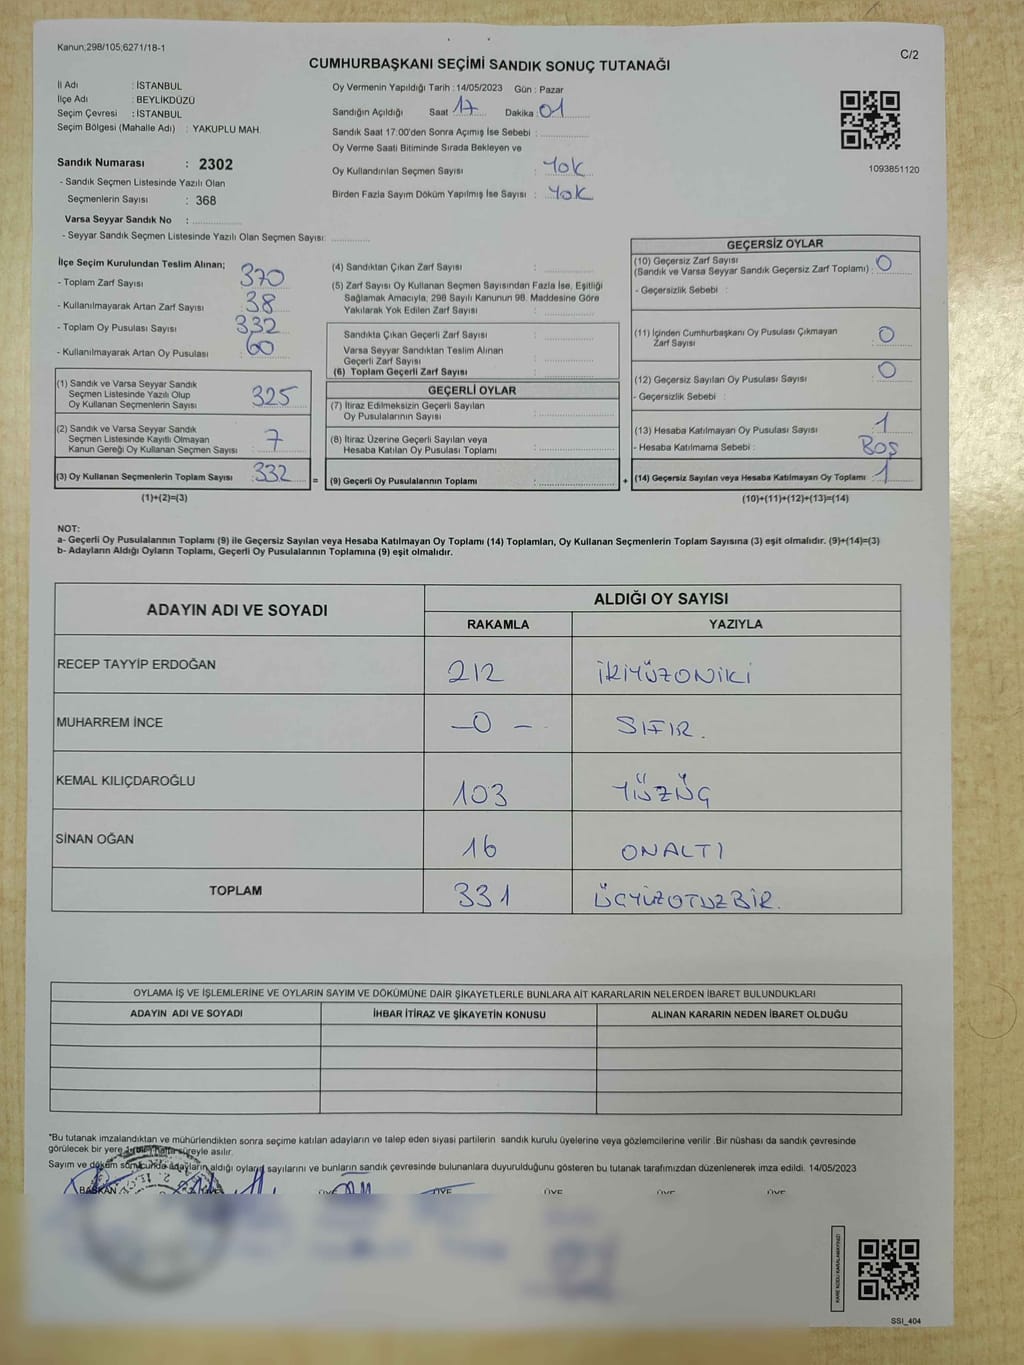 Kanun;298/105;6271/18-1
C/2
CUMHURBAŞKANI SEÇİMİ SANDIK SONUÇ TUTANAĞI
İl Adı : İSTANBUL
İlçe Adı : BEYLİKDÜZÜ
Seçim Çevresi : İSTANBUL
Seçim Bölgesi (Mahalle Adı) : YAKUPLU MAH.
Oy Vermenin Yapıldığı Tarih : 14/05/2023 Gün : Pazar
Sandığın Açıldığı Saat 17 Dakika : 01
Sandık Saat 17:00'den Sonra Açımış İse Sebebi :
Oy Verme Saati Bitiminde Sırada Bekleyen ve
Oy Kullandırılan Seçmen Sayısı : Yok
Birden Fazla Sayım Döküm Yapılmış İse Sayısı : Yok
1093851120
Sandık Numarası : 2302
- Sandık Seçmen Listesinde Yazılı Olan
Seçmenlerin Sayısı : 368
Varsa Seyyar Sandık No :
- Seyyar Sandık Seçmen Listesinde Yazılı Olan Seçmen Sayısı:
İlçe Seçim Kurulundan Teslim Alınan;
- Toplam Zarf Sayısı : 370
- Kullanılmayarak Artan Zarf Sayısı : 38
- Toplam Oy Pusulası Sayısı : 332
- Kullanılmayarak Artan Oy Pusulası : 60
(1) Sandık ve Varsa Seyyar Sandık
Seçmen Listesinde Yazılı Olup
Oy Kullanan Seçmenlerin Sayısı : 325
(2) Sandık ve Varsa Seyyar Sandık
Seçmen Listesinde Kayıtlı Olmayan
Kanun Gereği Oy Kullanan Seçmen Sayısı : 7
(3) Oy Kullanan Seçmenlerin Toplam Sayısı : 332
(1)+(2)=(3)
(4) Sandıktan Çıkan Zarf Sayısı :
(5) Zarf Sayısı Oy Kullanan Seçmen Sayısından Fazla İse, Eşitliği
Sağlamak Amacıyla, 298 Sayılı Kanunun 98. Maddesine Göre
Yakılarak Yok Edilen Zarf Sayısı :
Sandıkta Çıkan Geçerli Zarf Sayısı :
Varsa Seyyar Sandıktan Teslim Alınan
Geçerli Zarf Sayısı :
(6) Toplam Geçerli Zarf Sayısı :
GEÇERLİ OYLAR
(7) İtiraz Edilmeksizin Geçerli Sayılan
Oy Pusulalarının Sayısı :
(8) İtiraz Üzerine Geçerli Sayılan veya
Hesaba Katılan Oy Pusulası Toplamı :
= (9) Geçerli Oy Pusulalarının Toplamı : +
GEÇERSİZ OYLAR
(10) Geçersiz Zarf Sayısı
(Sandık ve Varsa Seyyar Sandık Geçersiz Zarf Toplamı) : 0
- Geçersizlik Sebebi :
(11) İçinden Cumhurbaşkanı Oy Pusulası Çıkmayan
Zarf Sayısı : 0
(12) Geçersiz Sayılan Oy Pusulası Sayısı : 0
- Geçersizlik Sebebi :
(13) Hesaba Katılmayan Oy Pusulası Sayısı : 1
- Hesaba Katılmama Sebebi : BOŞ
(14) Geçersiz Sayılan veya Hesaba Katılmayan Oy Toplamı : 1
(10)+(11)+(12)+(13)=(14)
NOT:
a- Geçerli Oy Pusulalarının Toplamı (9) ile Geçersiz Sayılan veya Hesaba Katılmayan Oy Toplamı (14) Toplamları, Oy Kullanan Seçmenlerin Toplam Sayısına (3) eşit olmalıdır. (9)+(14)=(3)
b- Adayların Aldığı Oyların Toplamı, Geçerli Oy Pusulalarının Toplamına (9) eşit olmalıdır.
ADAYIN ADI VE SOYADI
ALDIĞI OY SAYISI
RAKAMLA YAZIYLA
RECEP TAYYİP ERDOĞAN 212 İKİYÜZONİKİ
MUHARREM İNCE -0 - SIFIR.
KEMAL KILIÇDAROĞLU 103 YÜZÜÇ
SİNAN OĞAN 16 ONALTI
TOPLAM 331 ÜÇYÜZOTUZBİR.
OYLAMA İŞ VE İŞLEMLERİNE VE OYLARIN SAYIM VE DÖKÜMÜNE DAİR ŞİKAYETLERLE BUNLARA AİT KARARLARIN NELERDEN İBARET BULUNDUKLARI
ADAYIN ADI VE SOYADI İHBAR İTİRAZ VE ŞİKAYETİN KONUSU ALINAN KARARIN NEDEN İBARET OLDUĞU
*Bu tutanak imzalandıktan ve mühürlendikten sonra seçime katılan adayların ve talep eden siyasi partilerin sandık kurulu üyelerine veya gözlemcilerine verilir .Bir nüshası da sandık çevresinde
görülecek bir yere hafta süreyle asılır.
Sayım ve döküm sonucunda adayların aldığı oyların sayılarını ve bunların sandık çevresinde bulunanlara duyurulduğunu gösteren bu tutanak tarafımızdan düzenlenerek imza edildi. 14/05/2023
BAŞKAN ÜYE ÜYE ÜYE ÜYE ÜYE
KARE KODU KARALAMAYINIZ!
SSI_404